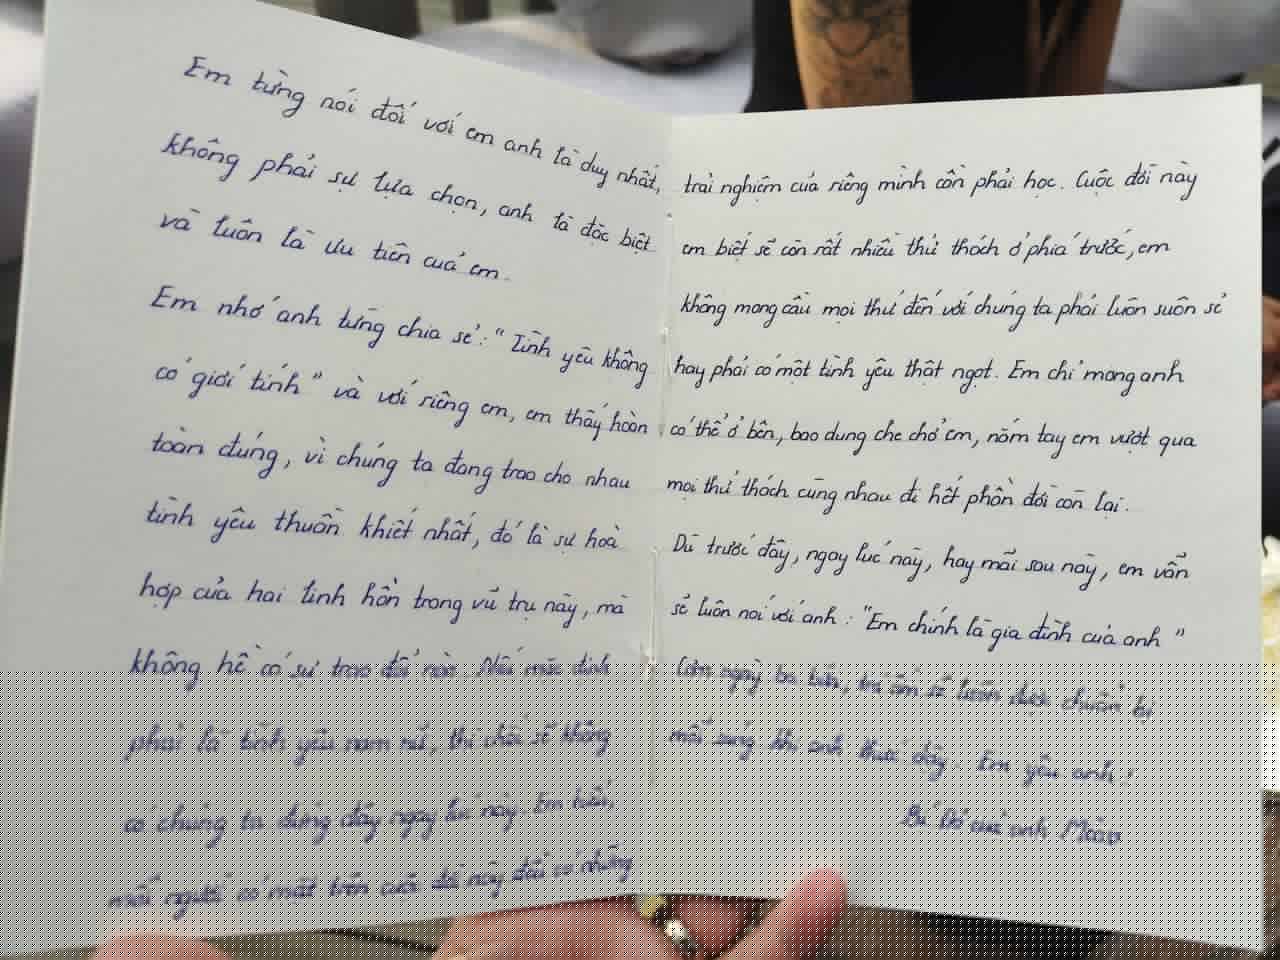 Em từng nói đối với em anh là duy nhất,
không phải sự lựa chọn, anh là đặc biệt
và luôn là ưu tiên của em.
Em nhớ anh từng chia sẻ: "Tình yêu không
có giới tính" và với riêng em, em thấy hoàn
toàn đúng, vì chúng ta đang trao cho nhau
tình yêu thuần khiết nhất, đó là sự hoà
hợp của hai linh hồn trong vũ trụ này, mà
không hề có sự trao đổi nào. Nếu mặc định
phải là tình yêu nam nữ, thì chắc sẽ không
có chúng ta đứng đây ngay lúc này. Em biết,
mỗi người có mặt trên cuộc đời này đều có những
trải nghiệm của riêng mình cần phải học. Cuộc đời này
em biết sẽ còn rất nhiều thử thách ở phía trước, em
không mong cầu mọi thứ đến với chúng ta phải luôn suôn sẻ
hay phải có một tình yêu thật ngọt. Em chỉ mong anh
có thể ở bên, bao dung che chở em, nắm tay em vượt qua
mọi thử thách cùng nhau đi hết phần đời còn lại.
Dù trước đây, ngay lúc này, hay mãi sau này, em vẫn
sẽ luôn nói với anh : "Em chính là gia đình của anh"
Cơm ngày ba bữa, trà ấm sẽ luôn được chuẩn bị
mỗi sáng khi anh thức dậy. Em yêu anh!
của anh